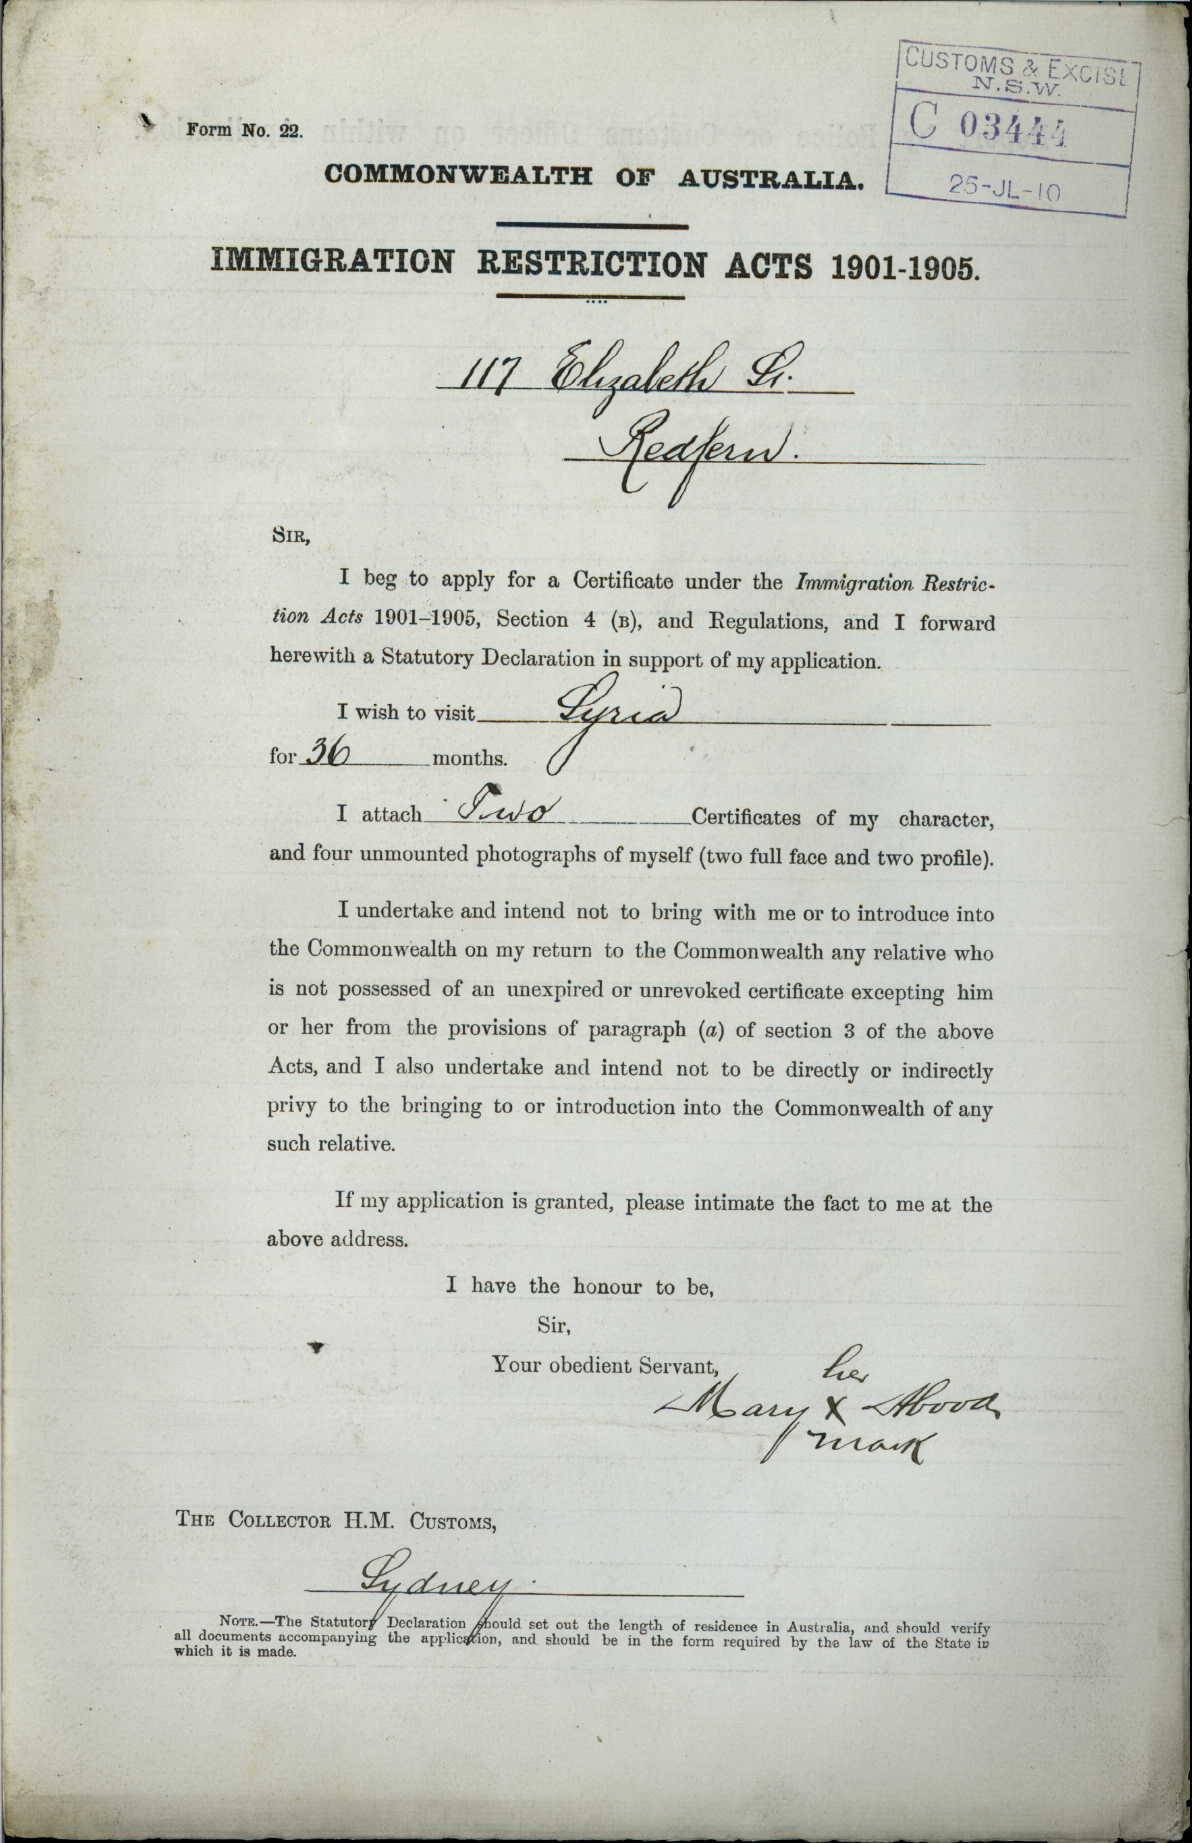 CUSTOMS & EXCISE
N.S.W.
C 03444
25-JL-10
Form No. 22.
COMMONWEALTH OF AUSTRALIA.
IMMIGRATION RESTRICTION ACTS 1901-1905.
117 Elizabeth St.
Redfern.
SIR,
I beg to apply for a Certificate under the Immigration Restric-
tion Acts 1901–1905, Section 4 (B), and Regulations, and I forward
herewith a Statutory Declaration in support of my application.
I wish to visit Syria
for 36 months.
I attach Two Certificates of my character,
and four unmounted photographs of myself (two full face and two profile).
I undertake and intend not to bring with me or to introduce into
the Commonwealth on my return to the Commonwealth any relative who
is not possessed of an unexpired or unrevoked certificate excepting him
or her from the provisions of paragraph (a) of section 3 of the above
Acts, and I also undertake and intend not to be directly or indirectly
privy to the bringing to or introduction into the Commonwealth of any
such relative.
If my application is granted, please intimate the fact to me at the
above address.
I have the honour to be,
Sir,
Your obedient Servant,
her
Mary X Abood
mark
THE COLLECTOR H.M. CUSTOMS,
Sydney.
NOTE.—The Statutory Declaration should set out the length of residence in Australia, and should verify
all documents accompanying the application, and should be in the form required by the law of the State in
which it is made.